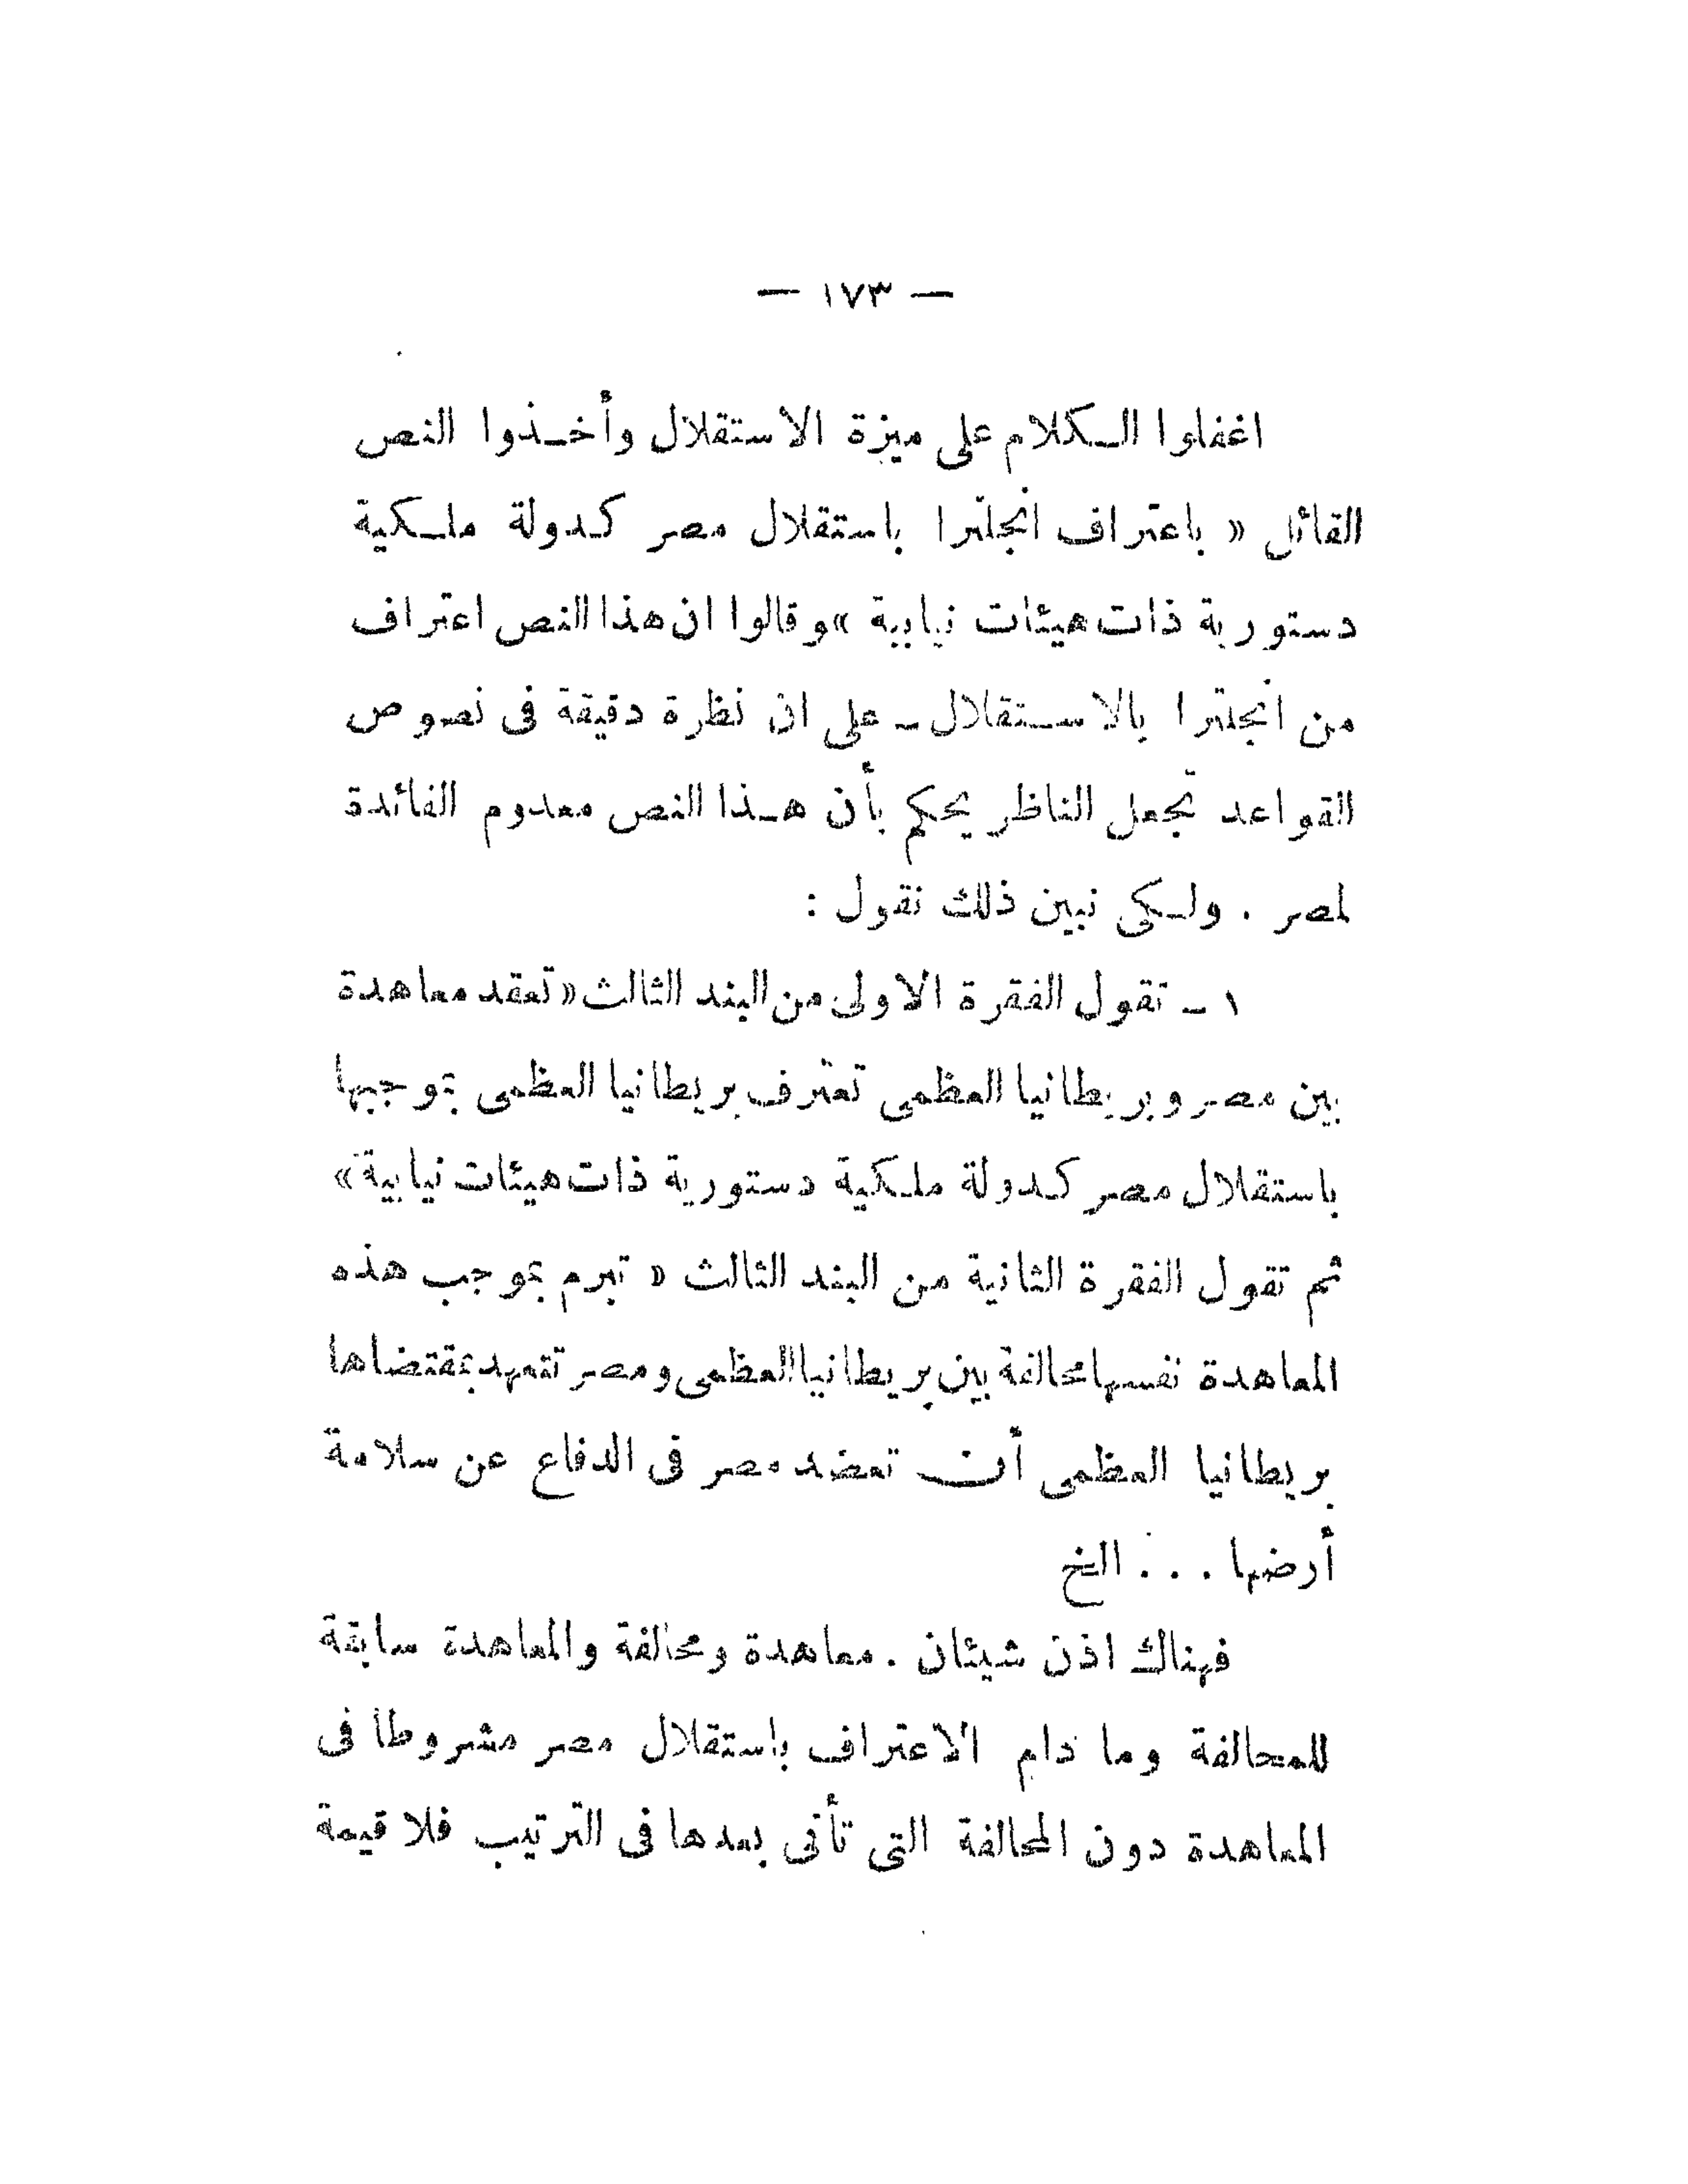 — ١٧٣ —
اغفلوا الكلام على ميزة الاستقلال وأخذوا النص
القائل « باعتراف انجلترا باستقلال مصر كدولة ملكية
دستورية ذات هيئات نيابية » وقالوا ان هذا النص اعتراف
من انجلترا بالاستقلال ـ على ان نظرة دقيقة فى نصوص
القواعد تجعل الناظر يحكم بأن هذا النص معدوم الفائدة
لمصر . ولكى نبين ذلك نقول :
١ ـ تقول الفقرة الاولى من البند الثالث « تعقد معاهدة
بين مصر وبريطانيا العظمى تعترف بريطانيا العظمى بموجبها
باستقلال مصر كدولة ملكية دستورية ذات هيئات نيابية »
ثم تقول الفقرة الثانية من البند الثالث « تبرم بموجب هذه
المعاهدة نفسها محالفة بين بريطانيا العظمى ومصر تتعهد بمقتضاها
بريطانيا العظمى أن تعضد مصر فى الدفاع عن سلامة
أرضها . . . الخ
فهناك اذن شيئان . معاهدة ومحالفة والمعاهدة سابقة
للمحالفة وما دام الاعتراف باستقلال مصر مشروطا فى
المعاهدة دون المحالفة التى تأتى بعدها فى الترتيب فلا قيمة